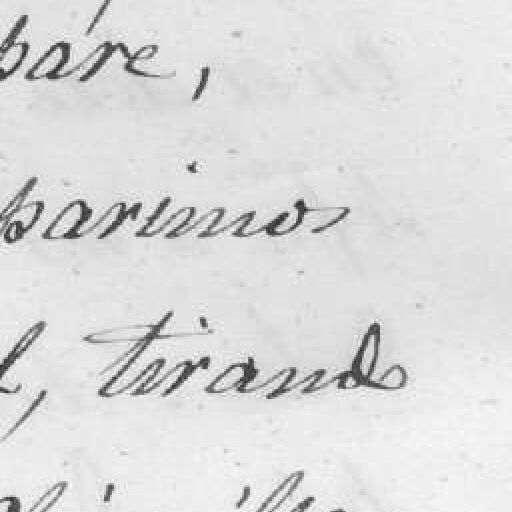 páre,
parimos
l, tirando